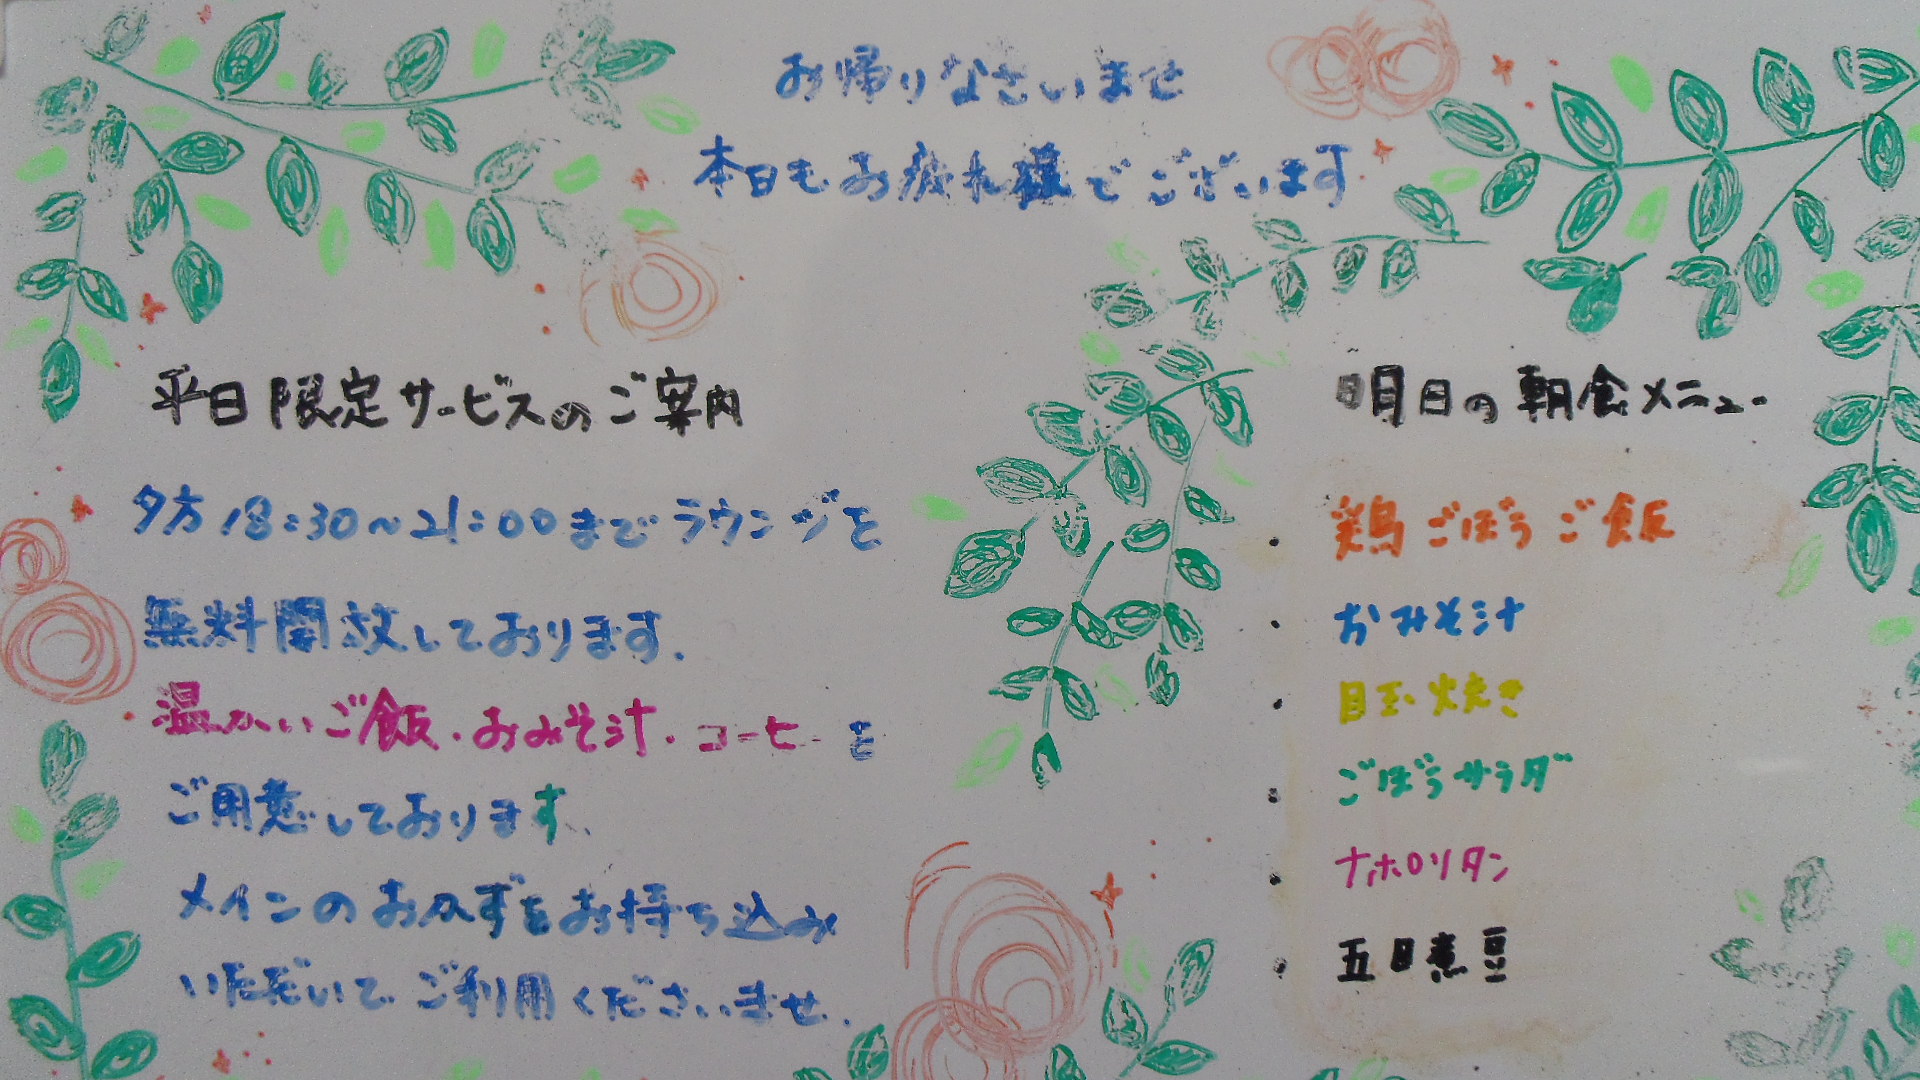 お帰りなさいませ
本日もお疲れ様でございます
平日限定サービスのご案内
夕方18:30～21:00までラウンジを
無料開放しております.
温かいご飯・おみそ汁・コーヒーを
ご用意しております.
メインのおかずをお持ち込み
いただいてご利用くださいませ.
明日の朝食メニュー
・鶏ごぼうご飯
・おみそ汁
・目玉焼き
・ごぼうサラダ
・ナポリタン
・五目煮豆